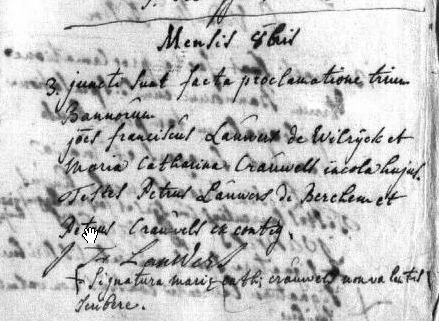 Mensis 8bris
3. juncti sunt facta proclamatione trium
Bannorum
joes franciscus Lauwers de Wilryck et
Maria Catharina Crauwels incola hujus.
Testes Petrus Lauwers de Berchem et
Petrus Crauwels ex contig.
Lauwers
Signatura mariæ cath: crauwels non valentis
scribere.